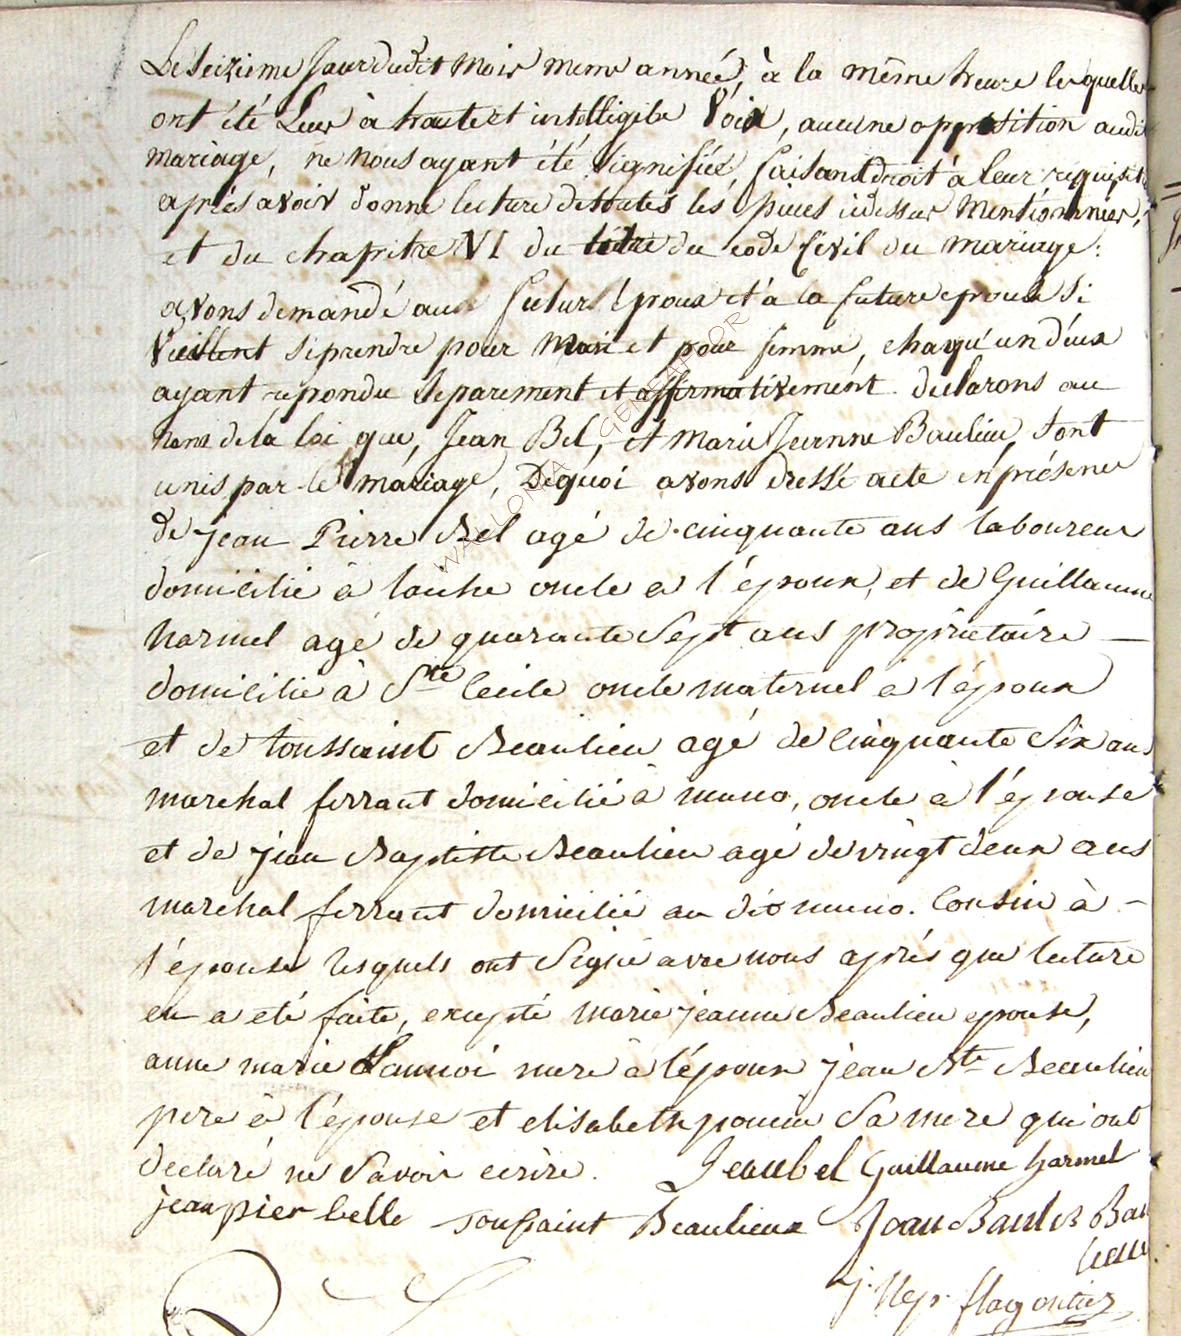 Le Seizieme Jour dudit Mois meme année, à la même heure lesquelles
ont été Lues à haute et intelligible Voix, aucune opposition audit
mariage, ne nous ayant été Signifiée, faisant droit à leur requisit
après avoir donné lecture de toutes les pieces cidessus Mentionnées,
et du chapitre VI du titre du code Civil du mariage:
avons demandé au futur Epoux et à la future epouse Si
Veullent Se prendre pour Mari et pour femme, chaqu'un d'eux
ayant repondu Separement et affirmativement declarons au
nom de la loi que, Jean Bel, et Marie Jeanne Baulieu, Sont
unis par le mariage, De quoi avons dressé acte en présence
de jean Pierre Bel agé de cinquante ans laboureur
domicilié à laiche oncle a l'époux, et de Guillaume
harmel agé de quarante Sept ans propriétaire
domicilié à Ste Cecile oncle maternel a l'époux
et de toussaint Beaulieu agé de cinquante Six ans
marehal ferrant domicilié à muno, oncle à l'épouse
et de jean Baptiste Beaulieu agé de vingt deux ans
marehal ferrant domicilié au dit muno. Cousin à
l'épouse lesquels ont Signé avec nous après que lecture
en a eté faite, excepté marie jeanne Beaulieu epouse,
anne marie Lannoi mere à l'époux jean Bte Beaulieu
pere à l'épouse et elisabeth poncin Sa mere qui ont
declaré ne Savoir ecrire. Jeanbel Guillaume harmel
jean pier belle toussaint Beaulieux Jean Baulieu
J. Nep. flagontier
WALLONIA GENEANOR